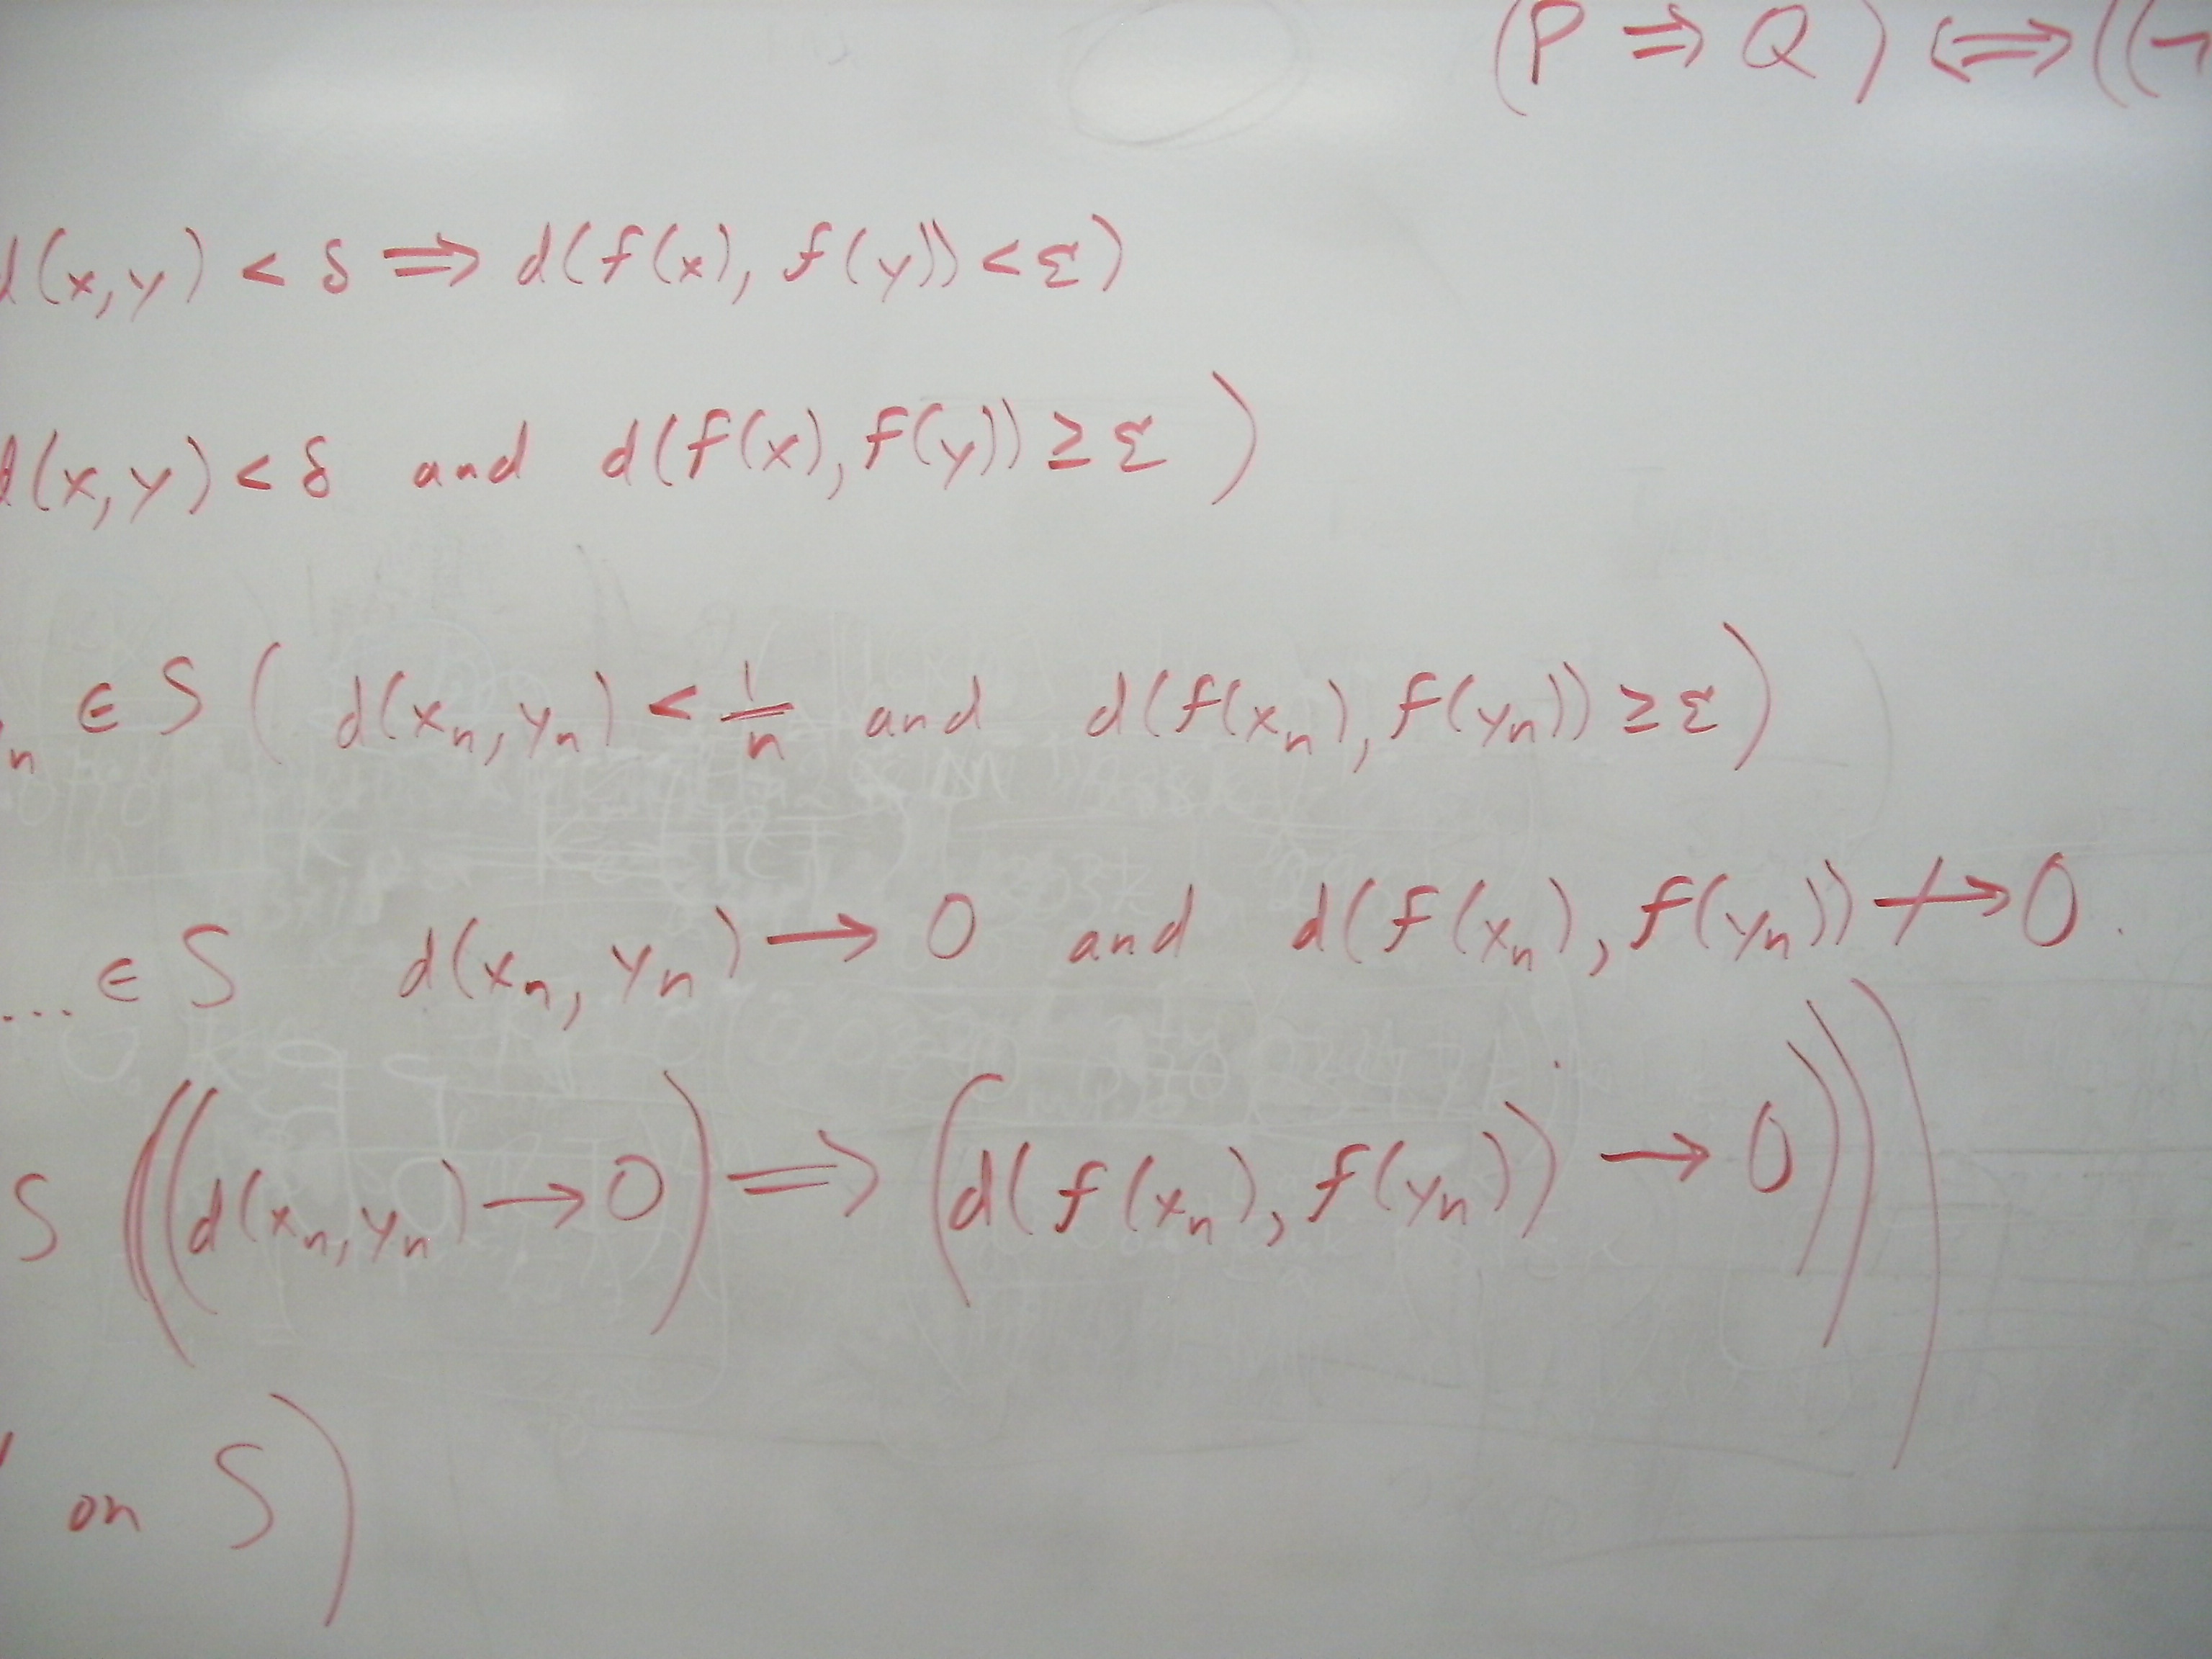 (P ⇒ Q) ⇔ ((¬
d(x,y) < δ ⇒ d(f(x), f(y)) < ε)
d(x,y) < δ and d(f(x), f(y)) ≥ ε)
n ∈ S ( d(xₙ, yₙ) < 1/n and d(f(xₙ), f(yₙ)) ≥ ε)
... ∈ S d(xₙ, yₙ) → 0 and d(f(xₙ), f(yₙ)) ↛ 0.
S ((d(xₙ, yₙ) → 0) ⇒ (d(f(xₙ), f(yₙ)) → 0)))
on S)